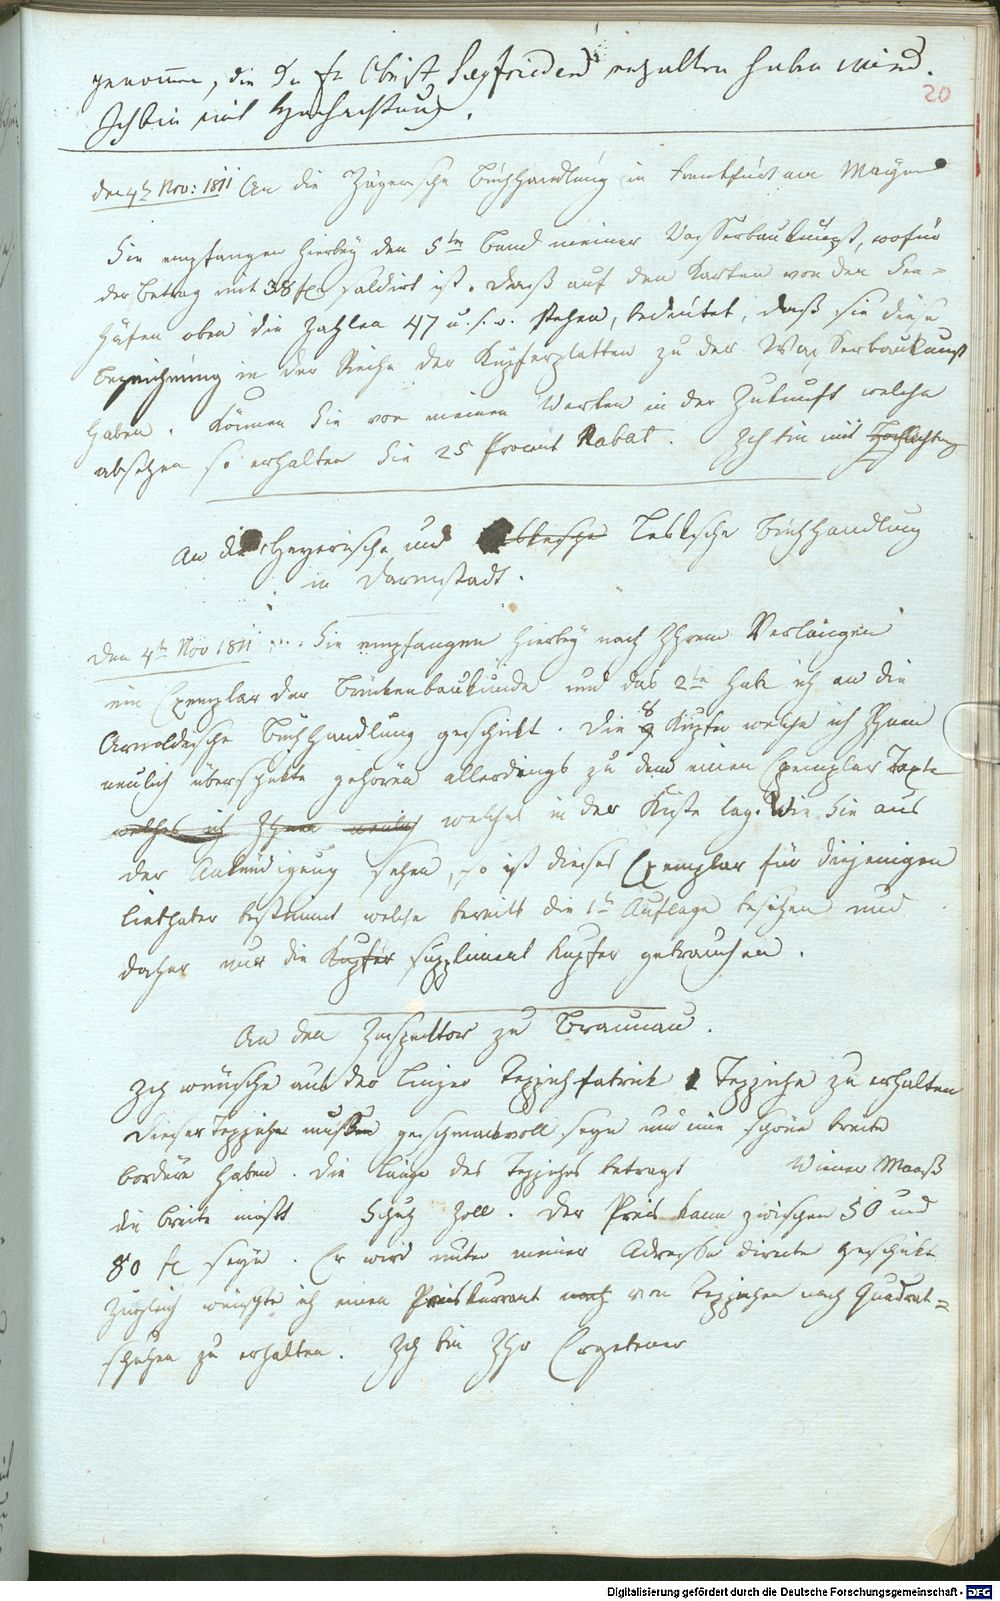 genommen, die der Hr Obrist Seyfried erhalten haben wird.
20
Ich bin mit Hochachtung.
den 4t Nov: 1811 An die Jägersche Buchhandlung in Frankfurt am Mayn
Sie empfangen hierbey den 5ten Band meiner Wasserbaukunst, wofür
der Betrag mit 38 fl saldirt ist. Daß auf den Karten von den See=
häfen oben die Zahlen 47 u. s. w. stehen, bedeutet, daß sie diese
Bezeichnung in der Reihe der Kupferplatten zu der Wasserbaukunst
haben. Können Sie von meinen Werken in der Zukunft welche
absetzen so erhalten Sie 25 Procent Rabat. Ich bin mit Hochachtung
An die Heyerische und Leskesche Buchhandlung
in Darmstadt.
Den 4ten Nov 1811 .... Sie empfangen hierbey nach Ihrem Verlangen
ein Exemplar der Brückenbaukunde und das 2te habe ich an die
Arnoldische Buchhandlung geschickt. Die 8 Kupfer welche ich Ihnen
neulich überschikte gehören allerdings zu dem einen Exemplar Texte
welches ich Ihnen neulich welches in der Kiste lag. Wie Sie aus
der Ankündigung sehen, so ist dieses Exemplar für diejenigen
Liebhaber bestimmt welche bereits die 1te Auflage besitzen und
daher nur die Kupfer suppliment Kupfer gebrauchen.
An den Inspektor zu Braunau.
Ich wünsche aus der Linzer Teppichfabrik 1 Teppiche zu erhalten
Dieser Teppiche mussen geschmackvoll seyn und eine schöne breite
Bordüre haben. Die Länge des Teppiches betragt Wiener Maaß
die Breite mißt Schuh Zoll. Der Preis kann zwischen 50 und
80 fl seyn. Er wird unter meiner Adresse directe geschikt
Zugleich wünschte ich einen Preiskurrant nach von Teppichen nach Quadrat=
schuhen zu erhalten. Ich bin Ihr Ergebener
Digitalisierung gefördert durch die Deutsche Forschungsgemeinschaft - DFG